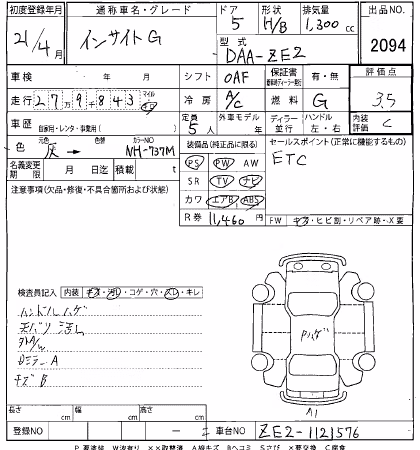 初度登録年月 通称車名・グレード ドア 形状 排気量 出品NO.
21/4月 インサイト G 5 H/B 1,300cc 2094
型式 DAA-ZE2
車検 年 月 シフト OAF 保証書 有・無 評価点
走行 279843 マイル km 冷房 A/C 燃料 G 3.5
車歴 自家用・レンタ・事業用( ) 定員 5人 外車モデル 年 ディーラー 並行 ハンドル 左・右 内装評価 C
色 元色 灰 → 色替 カラーNO NH-737M 装備品(純正品に限る) セールスポイント(正常に機能するもの)
名義変更期限 月 日迄 積載 t PS PW AW ETC
注意事項(欠品・修復・不具合箇所および状態) SR TV ナビ
カワ エアB ABS
R券 11,460円 FW キズ・ヒビ割・リペア跡・X要
検査員記入 内装 キズ・汚レ・コゲ・穴・スレ・キレ
ハンドルハゲ
天バリ 汚レ
外A/W
Dミラー A
キズ B
Pハゲ
A1
長さ cm 幅 cm 高さ cm
登録NO — 車台NO ZE2-1121576
P要塗装 W波有り ××取替済 A線キズ Bヘコミ Sさび ×要交換 C腐食